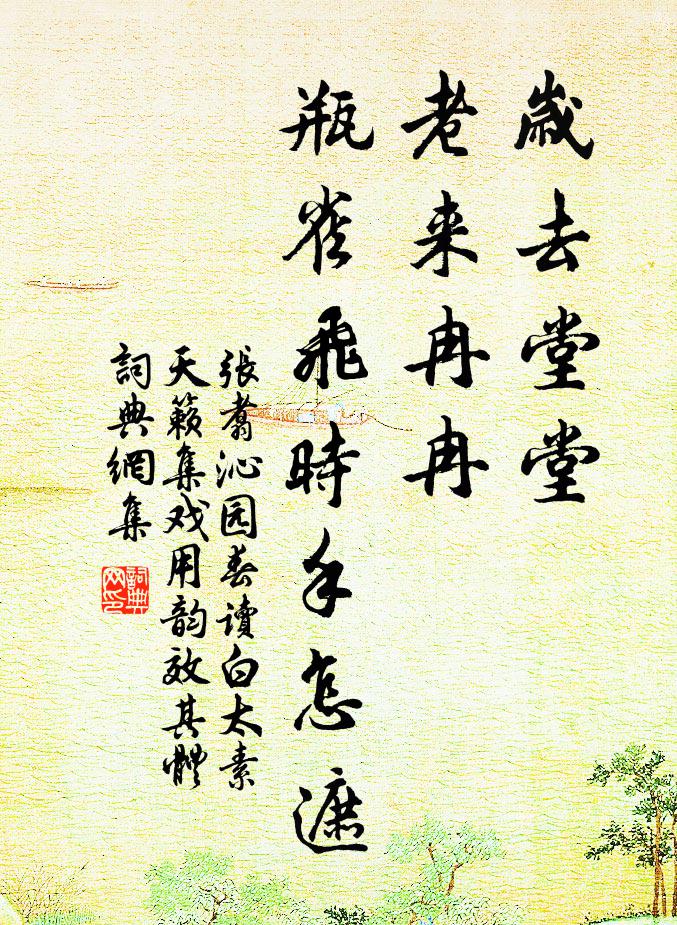 歲去堂堂
老来冉冉
瓶雀飛時手怎遮
張翥沁园春讀白太素
天籟集戏用韵效其體
詞典網集
詞典
网印